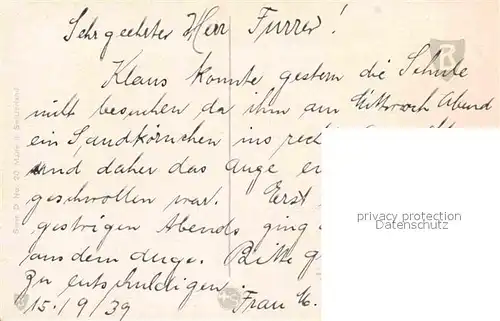 Sehr geehrter Herr Furrer!
Klaus konnte gestern die Schule
nicht besuchen da ihm am Mittwoch Abend
ein Sandkörnchen ins rech
und daher das Auge
geschwollen war. Erst
gestrigen Abends ging
aus dem Auge. Bitte
zu entschuldigen
15.19/39 Frau
privacy protection
Datenschutz
R